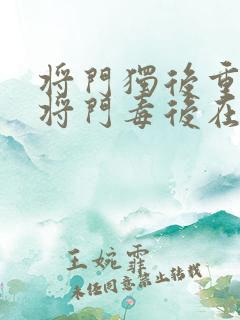 将門獨後重
将門毒後在
王婉霏
未经同意禁止转载